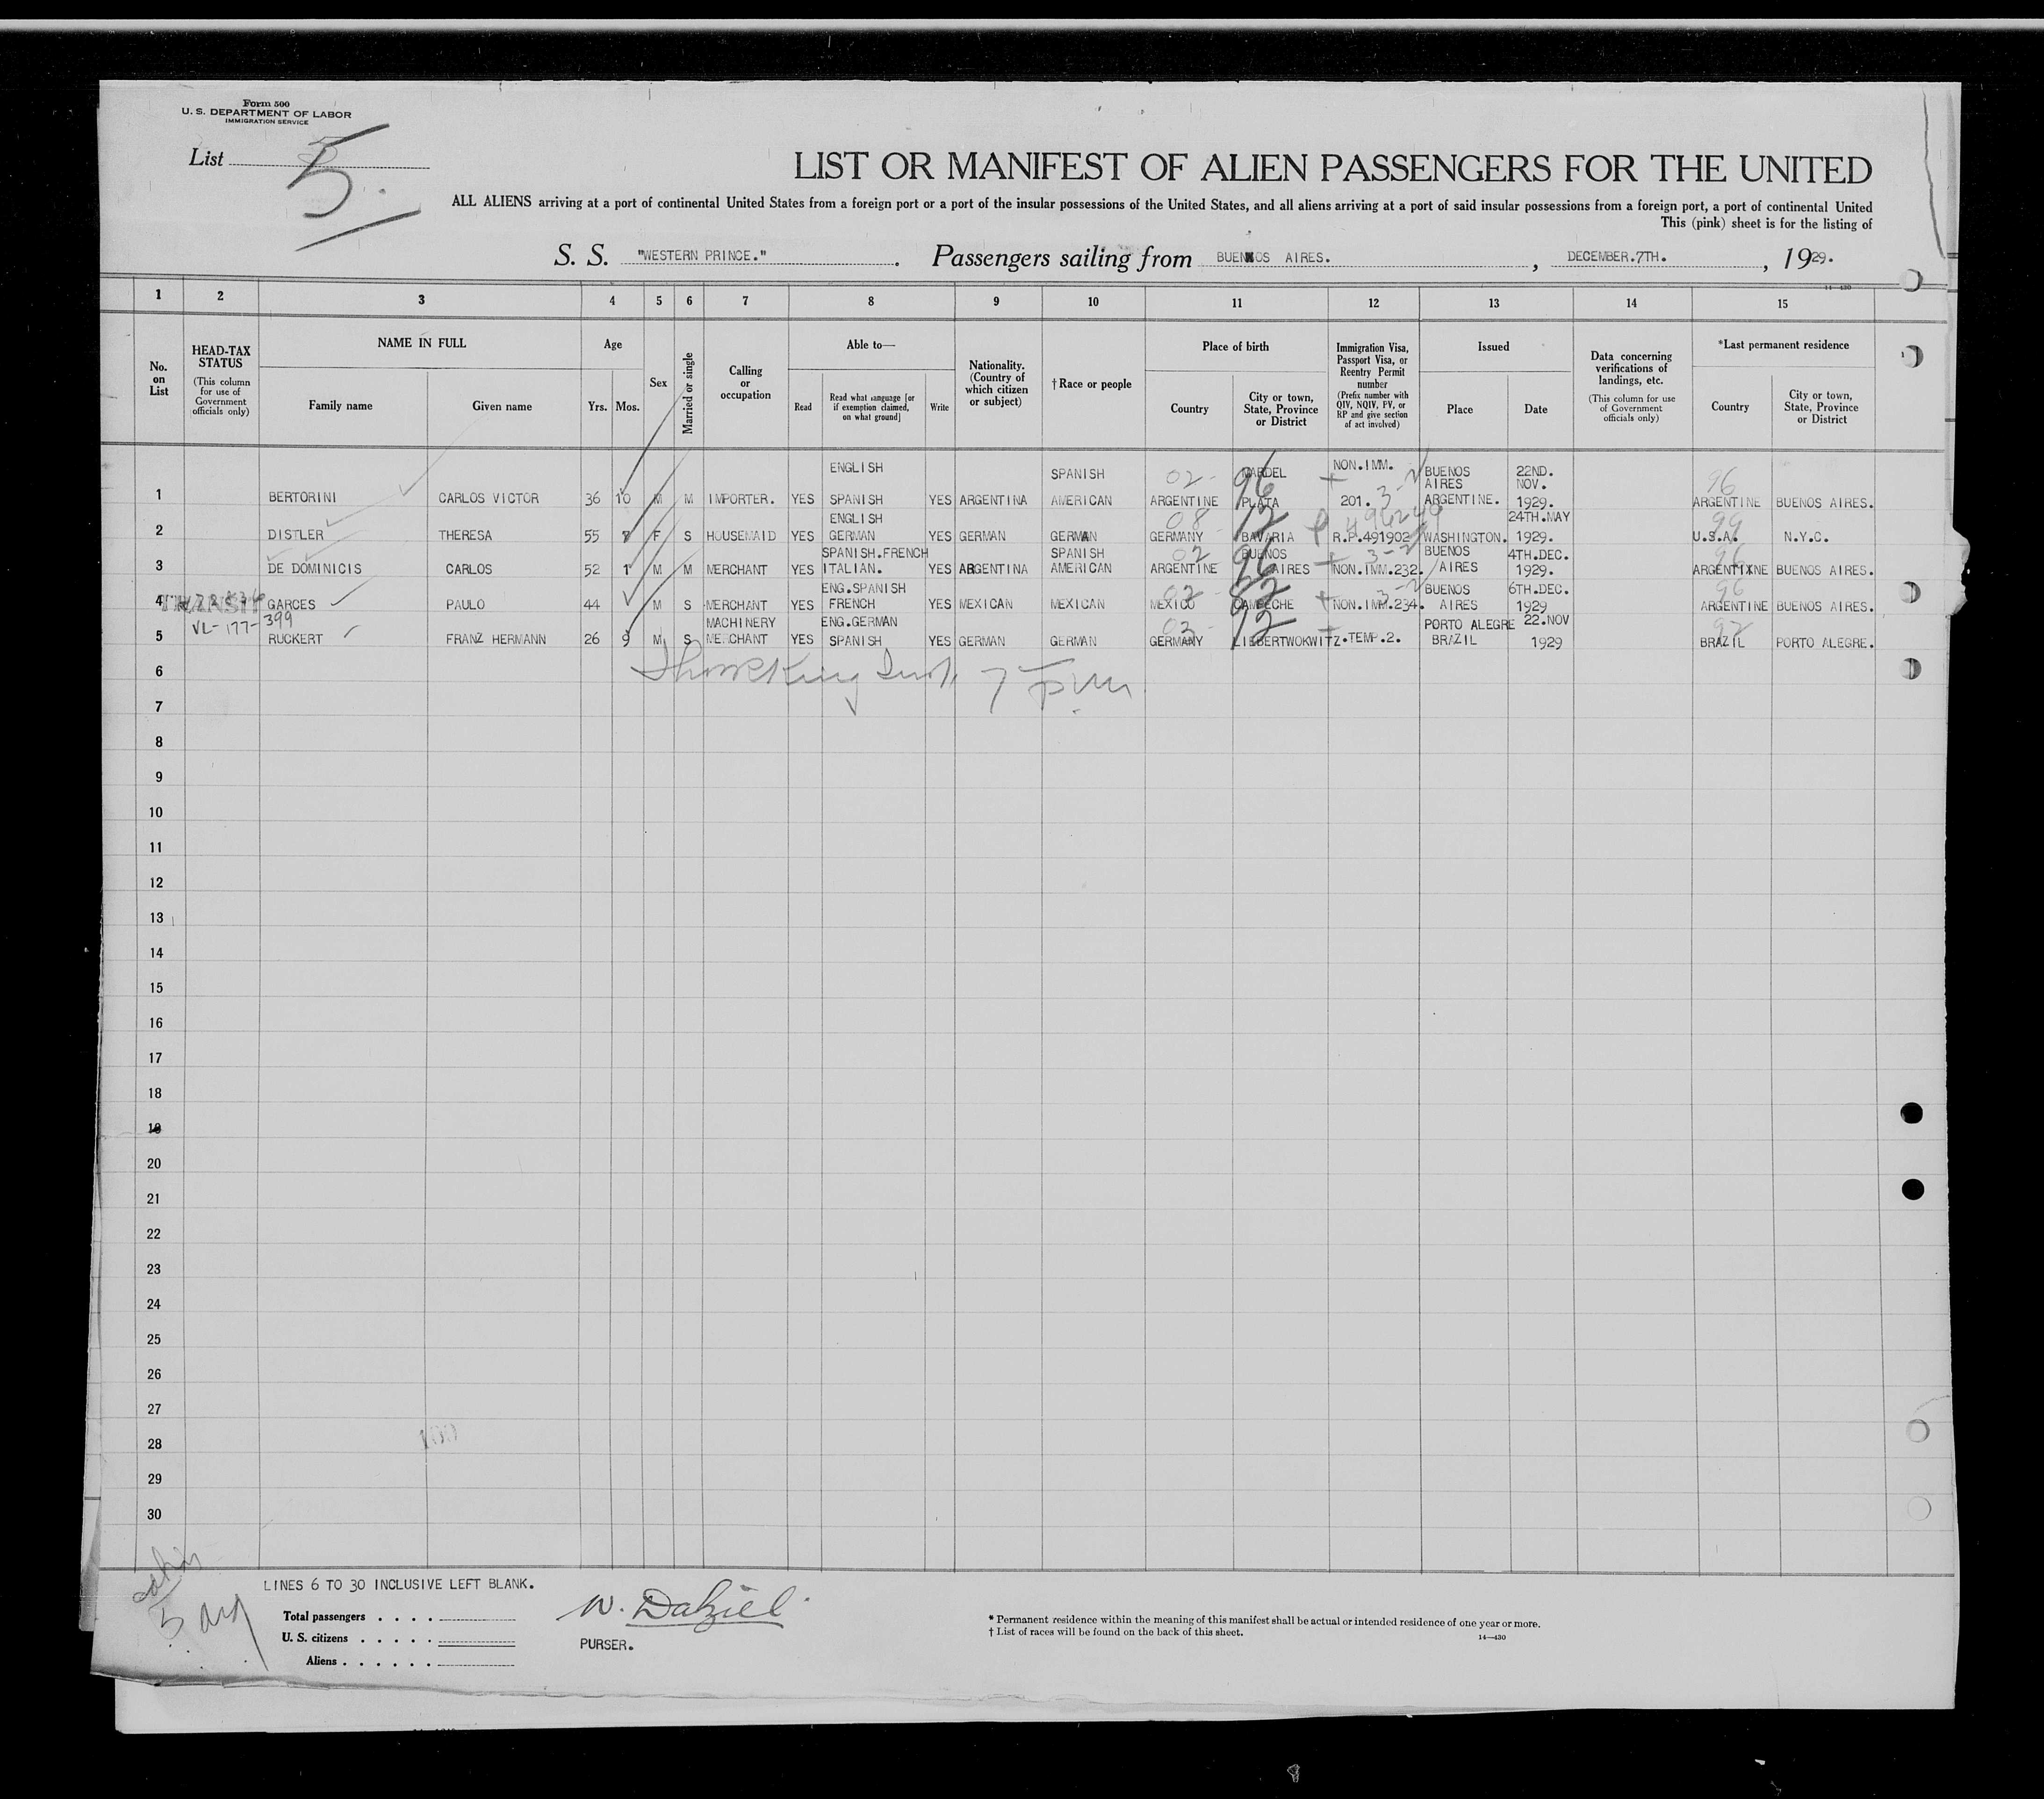 Form 500
U. S. DEPARTMENT OF LABOR
IMMIGRATION SERVICE
List 5.
LIST OR MANIFEST OF ALIEN PASSENGERS FOR THE UNITED
ALL ALIENS arriving at a port of continental United States from a foreign port or a port of the insular possessions of the United States, and all aliens arriving at a port of said insular possessions from a foreign port, a port of continental United
This (pink) sheet is for the listing of
S. S. "WESTERN PRINCE." Passengers sailing from BUENOS AIRES. , DECEMBER.7TH. , 1929.
14—430
1 2 3 4 5 6 7 8 9 10 11 12 13 14 15
No. on List
HEAD-TAX STATUS (This column for use of Government officials only)
NAME IN FULL
Family name
Given name
Age
Yrs. Mos.
Sex
Married or single
Calling or occupation
Able to—
Read
Read what language [or if exemption claimed, on what ground]
Write
Nationality. (Country of which citizen or subject)
† Race or people
Place of birth
Country
City or town, State, Province or District
Immigration Visa, Passport Visa, or Reentry Permit number (Prefix number with QIV, NQIV, PV, or RP and give section of act involved)
Issued
Place
Date
Data concerning verifications of landings, etc. (This column for use of Government officials only)
*Last permanent residence
Country
City or town, State, Province or District
ENGLISH SPANISH 02- 96 MARDEL NON.IMM. 3-2 BUENOS AIRES 22ND. NOV. 96
1 BERTORINI CARLOS VICTOR 36 10 M M IMPORTER. YES SPANISH YES ARGENTINA AMERICAN ARGENTINE PLATA 201. ARGENTINE. 1929. ARGENTINE BUENOS AIRES.
ENGLISH 08 12 24TH.MAY 99
2 DISTLER THERESA 55 F S HOUSEMAID YES GERMAN YES GERMAN GERMAN GERMANY BAVARIA R.P.491902 WASHINGTON. 1929. U.S.A. N.Y.C.
SPANISH.FRENCH SPANISH 02 96 BUENOS 3-2 BUENOS 4TH.DEC. 96
3 DE DOMINICIS CARLOS 52 1 M M MERCHANT YES ITALIAN. YES ARGENTINA AMERICAN ARGENTINE AIRES NON.IMM.232. AIRES 1929. ARGENTIXNE BUENOS AIRES.
ENG.SPANISH 02- 82 3-2 BUENOS 6TH.DEC. 96
4 TRANSIT GARCES PAULO 44 M S MERCHANT YES FRENCH YES MEXICAN MEXICAN MEXICO CAMPECHE NON.IMM.234. AIRES 1929 ARGENTINE BUENOS AIRES.
VL-177-399 MACHINERY ENG.GERMAN 02- 12 PORTO ALEGRE 22.NOV 92
5 RUCKERT FRANZ HERMANN 26 9 M S MERCHANT YES SPANISH YES GERMAN GERMAN GERMANY LIEBERTWOKWITZ. TEMP.2. BRAZIL 1929 BRAZIL PORTO ALEGRE.
6
7 pm
7
8
9
10
11
12
13
14
15
16
17
18
19
20
21
22
23
24
25
26
27
28
29
30
LINES 6 TO 30 INCLUSIVE LEFT BLANK.
Total passengers . . . .
U. S. citizens . . . . .
Aliens . . . . . .
W. Dalziel
PURSER.
* Permanent residence within the meaning of this manifest shall be actual or intended residence of one year or more.
† List of races will be found on the back of this sheet.
14—430